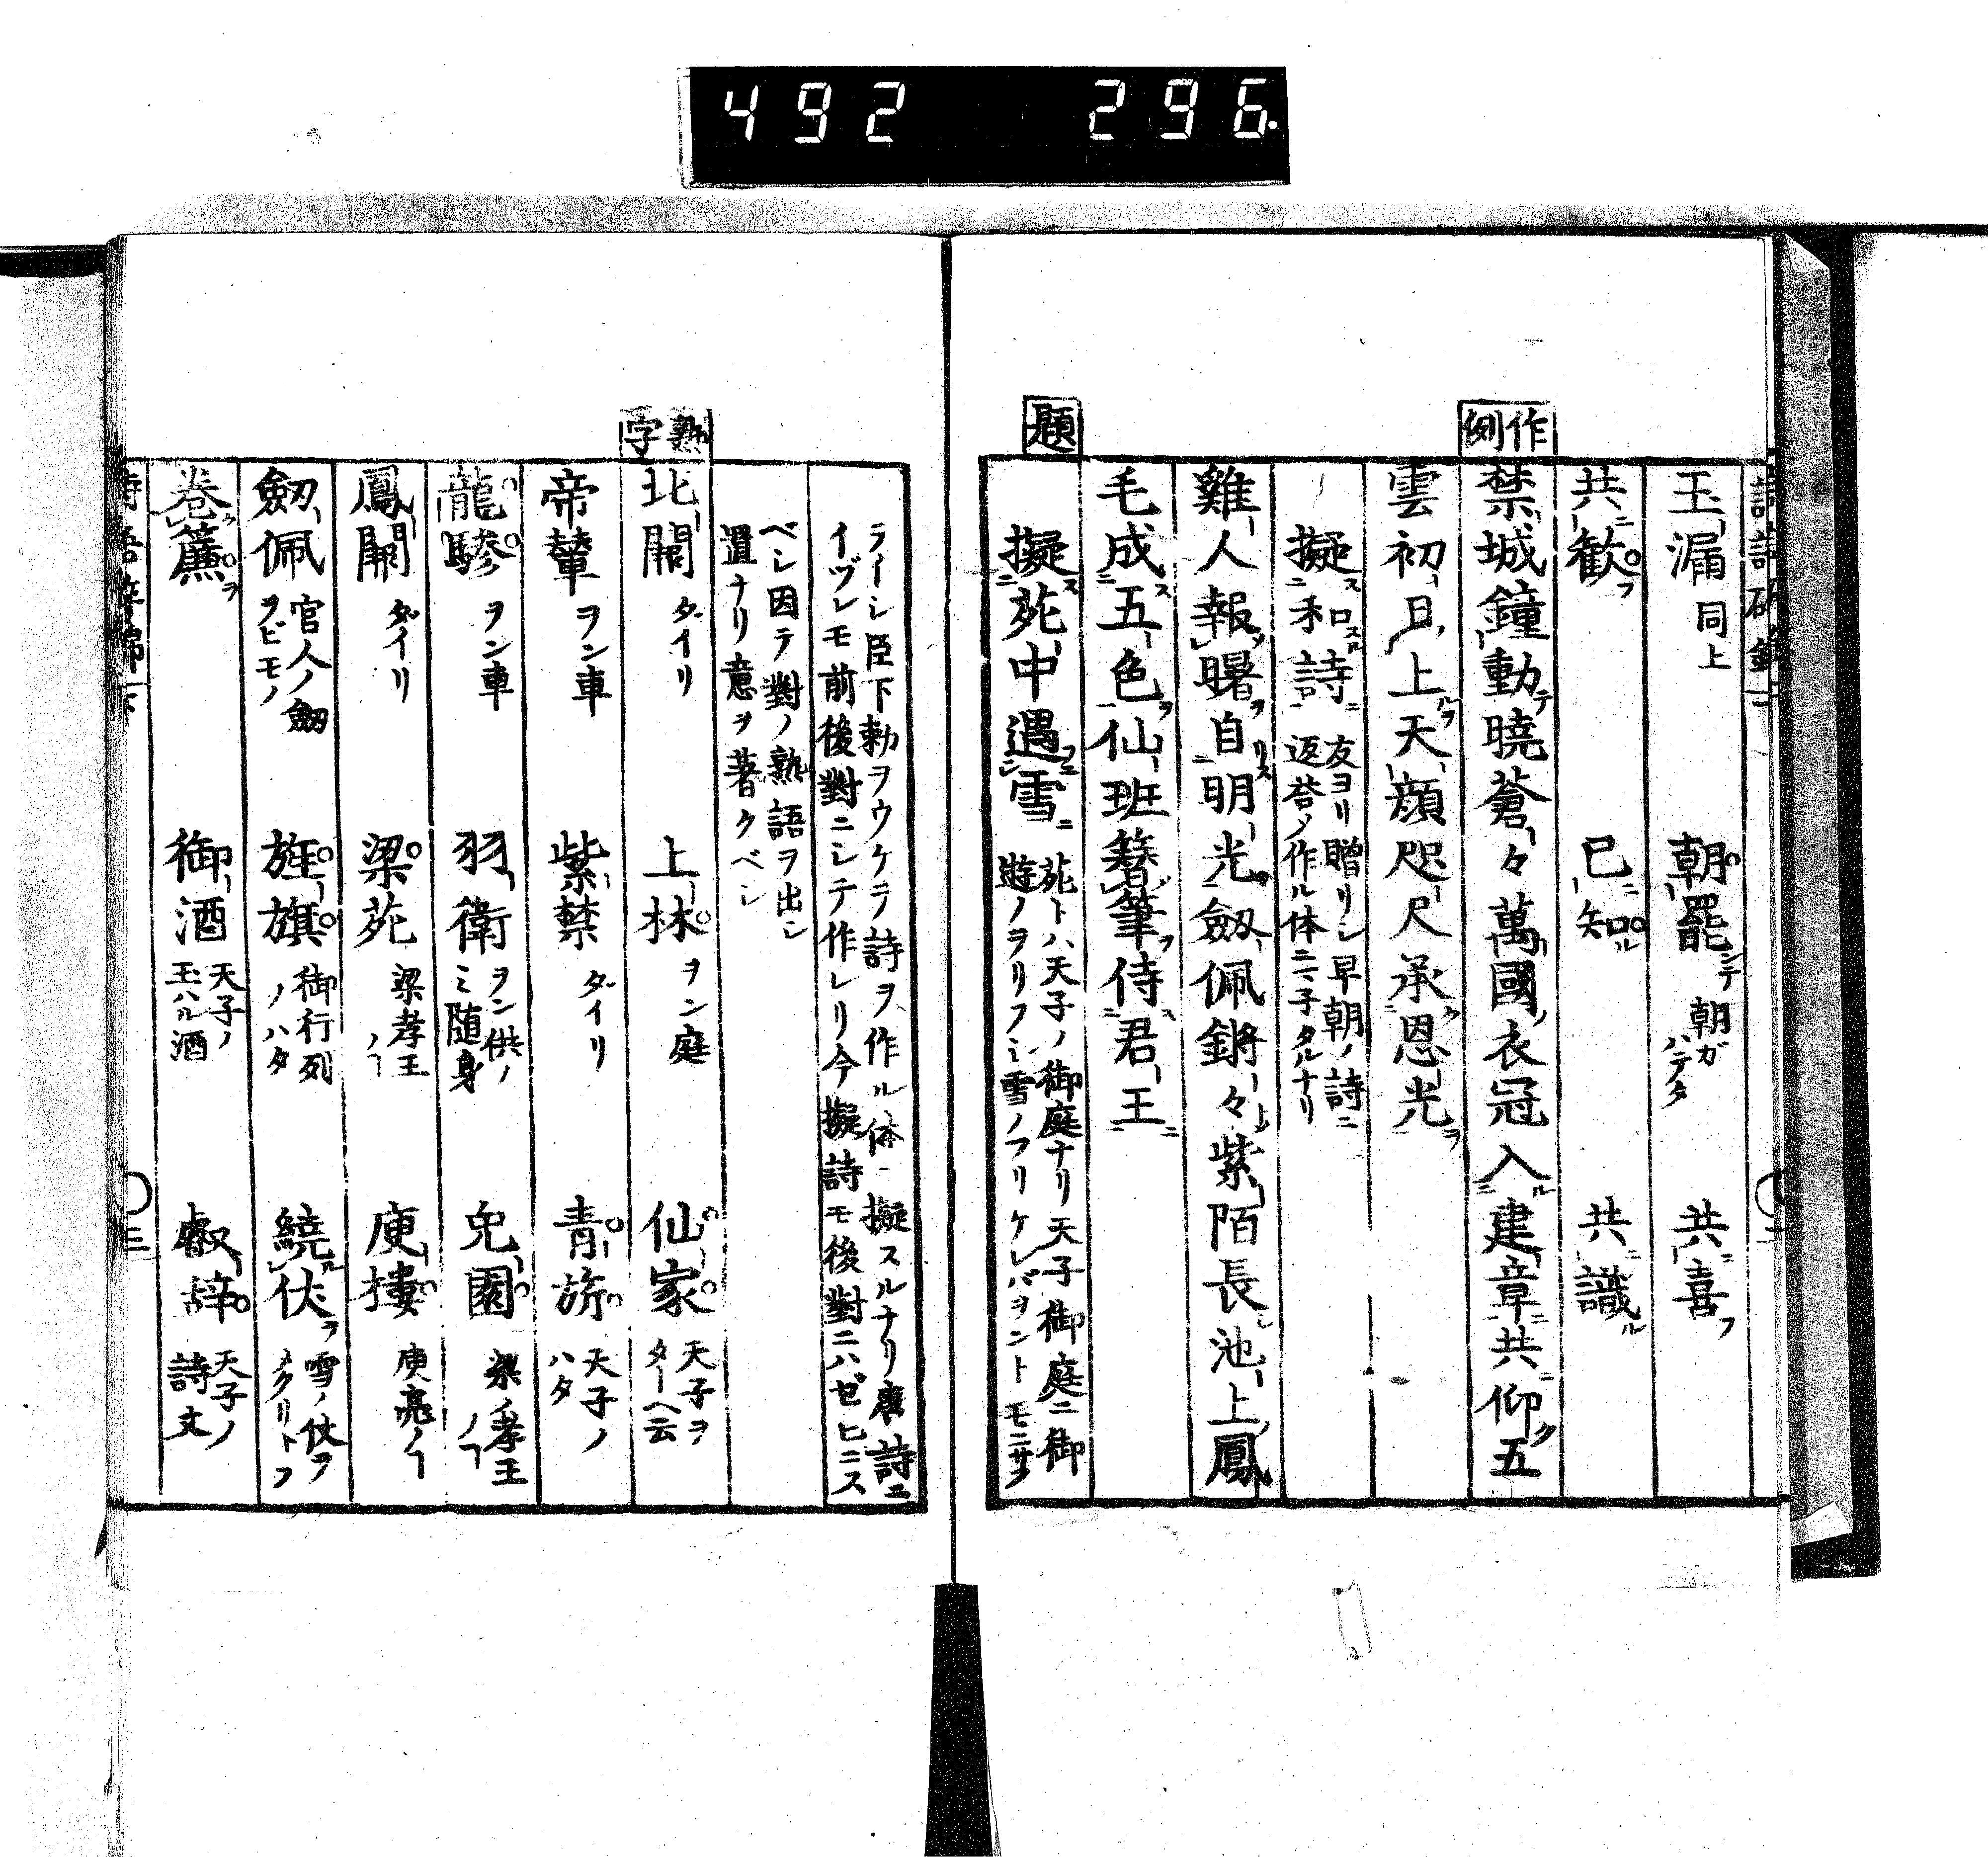 492 296
玉漏 同上 朝罷シテ 朝ガハテタ 共ニ喜フ
共ニ歓フ 已ニ知ル 共ニ識ル
作例
禁城鐘動テ曉蒼々萬國ノ衣冠入ル建章ニ共ニ仰ク五
雲初日ノ上ルヲ天顔咫尺承ク恩光ヲ
擬スニ和スル詩ニ 友ヨリ贈リシ早朝ノ詩ニ
返荅ノ作ル体ニマ子タルナリ
雞人報ソ曙ヲ自リス明光ヲ劔佩鏘々ト紫陌長シ池上ノ鳳
毛成スニ五色ヲ仙班簪ノ筆ヲ侍ス君王ニ
題
擬ス苑中遇フニ雪ニ 苑トハ天子ノ御庭ナリ天子御庭ニ御
遊ノヲリフシ雪ノフリケレバヲントモニサフ
ラーレシ臣下勅ヲウケテ詩ヲ作ル体ニ擬スルナリ應詩ニ
イヅレモ前後對ニシテ作レリ今擬詩モ後對ニハゼヒニス
ベシ因テ對ノ熟語ヲ出シ
置ナリ意ヲ著クベシ
熟字
北闕 ダイリ 上林 ヲン庭 仙家 天子ヲターヘ云
帝輦 ヲン車 紫禁 ダイリ 青旂 天子ノハタ
龍驂 ヲン車 羽衛 ヲン供ノミ随身 兎園 梁ノ孝王ノヿ
鳳闕 ダイリ 梁苑 梁孝王ノヿ 庾樓 庾亮ノヿ
劔佩 官人ノ劔ヲビモノ 旌旗 御行列ノハタ 繞ル伏ヲ 雪ノ仗ヲメクリトフ
巻ク簾ヲ 御酒 天子ノ玉ハル酒 叡辞 天子ノ詩文
三